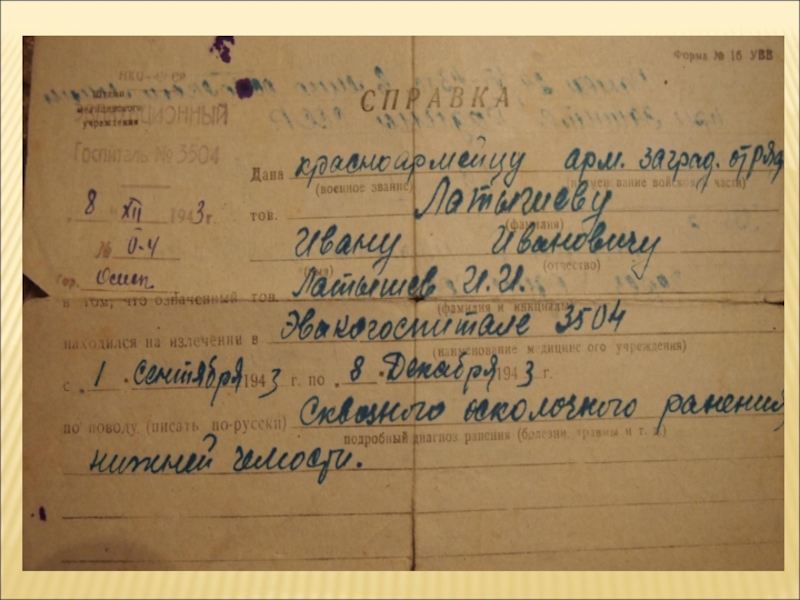 Форма № 16 УВВ
НКО-СССР
Штамп
медицинского
учреждения
СПРАВКА
Госпиталь № 3504
Дана красноармейцу арм. заград. отряд
(военное звание) (наименование войсковой части)
8 XII 1943 г. тов. Латышеву
(фамилия)
№ 0-4 Ивану Ивановичу
(имя) (отчество)
Гор.
в том, что означенный тов. Латышев И.И.
(фамилия и инициалы)
находился на излечении в Эвакогоспитале 3504
(наименование медицинского учреждения)
с 1 Сентября 1943 г. по 8 Декабря 1943 г.
по поводу (писать по-русски) Сквозного осколочного ранения
подробный диагноз ранения (болезни, травмы и т. д.)
нижней чемости.